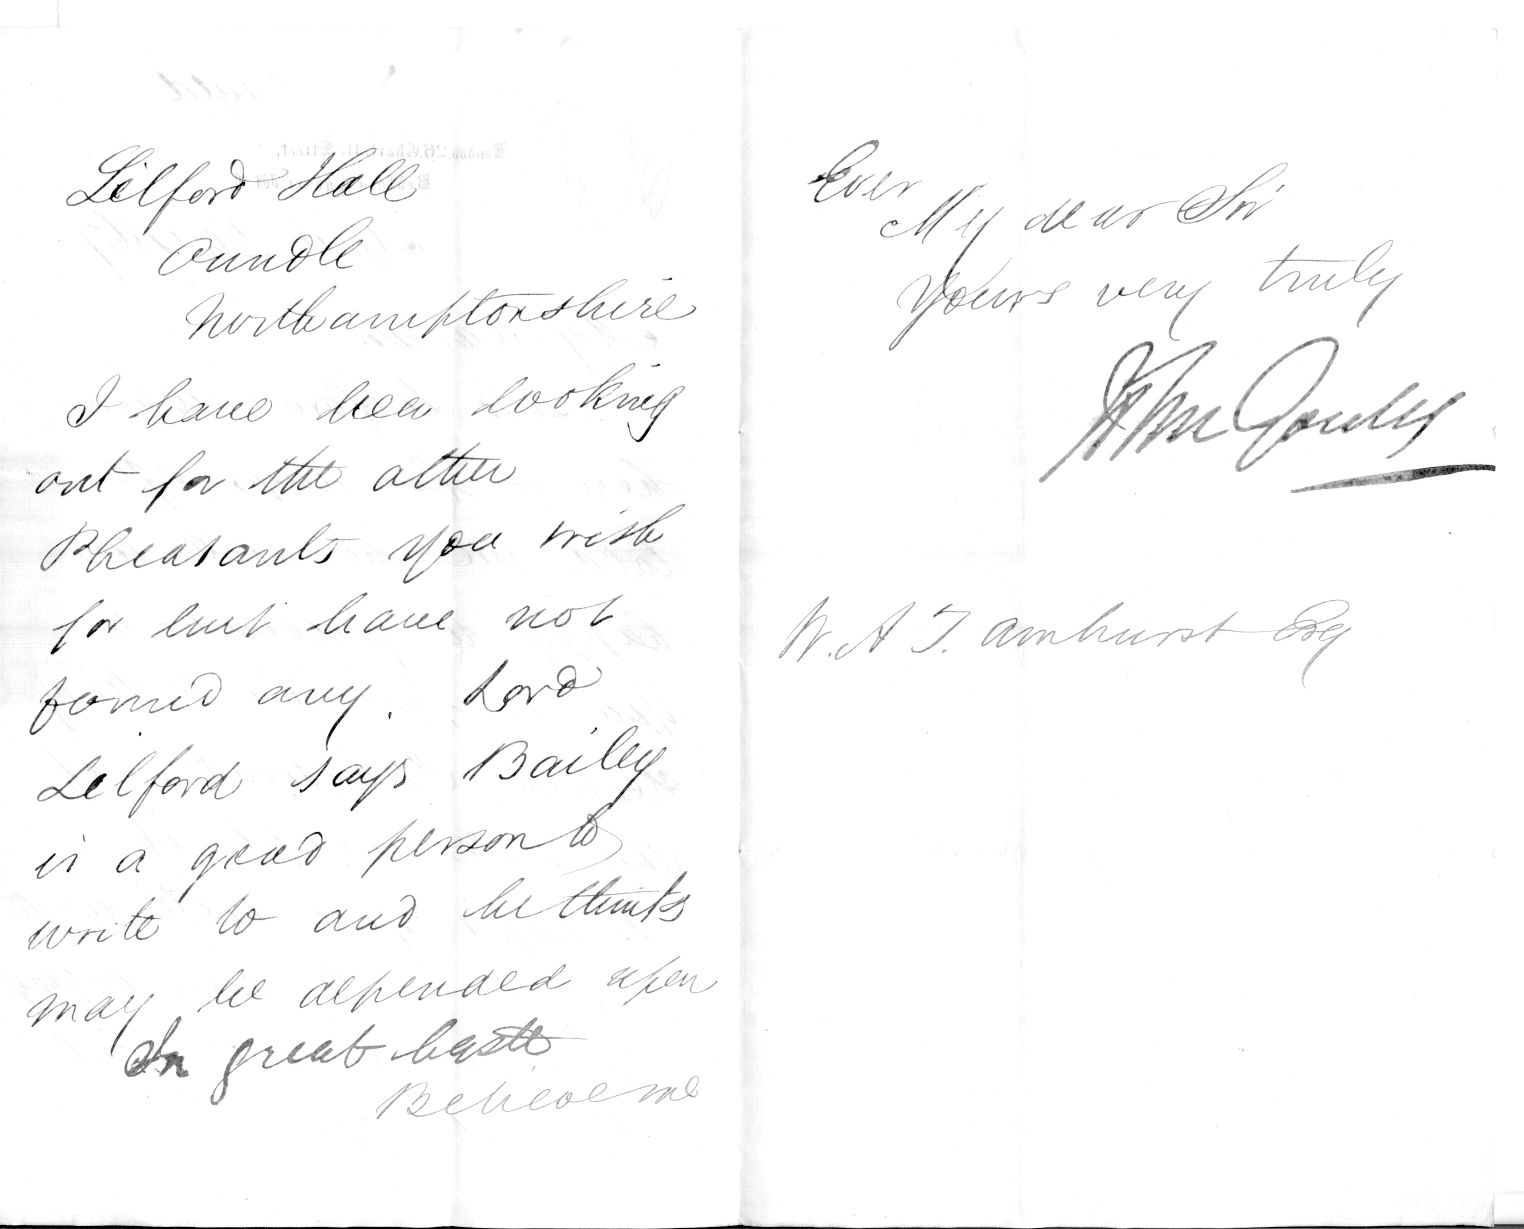 Lilford Hall
Oundle
Northamptonshire
I have been looking
out for the other
Pheasants you wish
for but have not
found any. Lord
Lilford says Bailey
is a good person to
write to and he thinks
may be depended upon
In great haste
Believe me
Ever
My dear Sir
Yours very truly
W. A T. Amhurst Esq